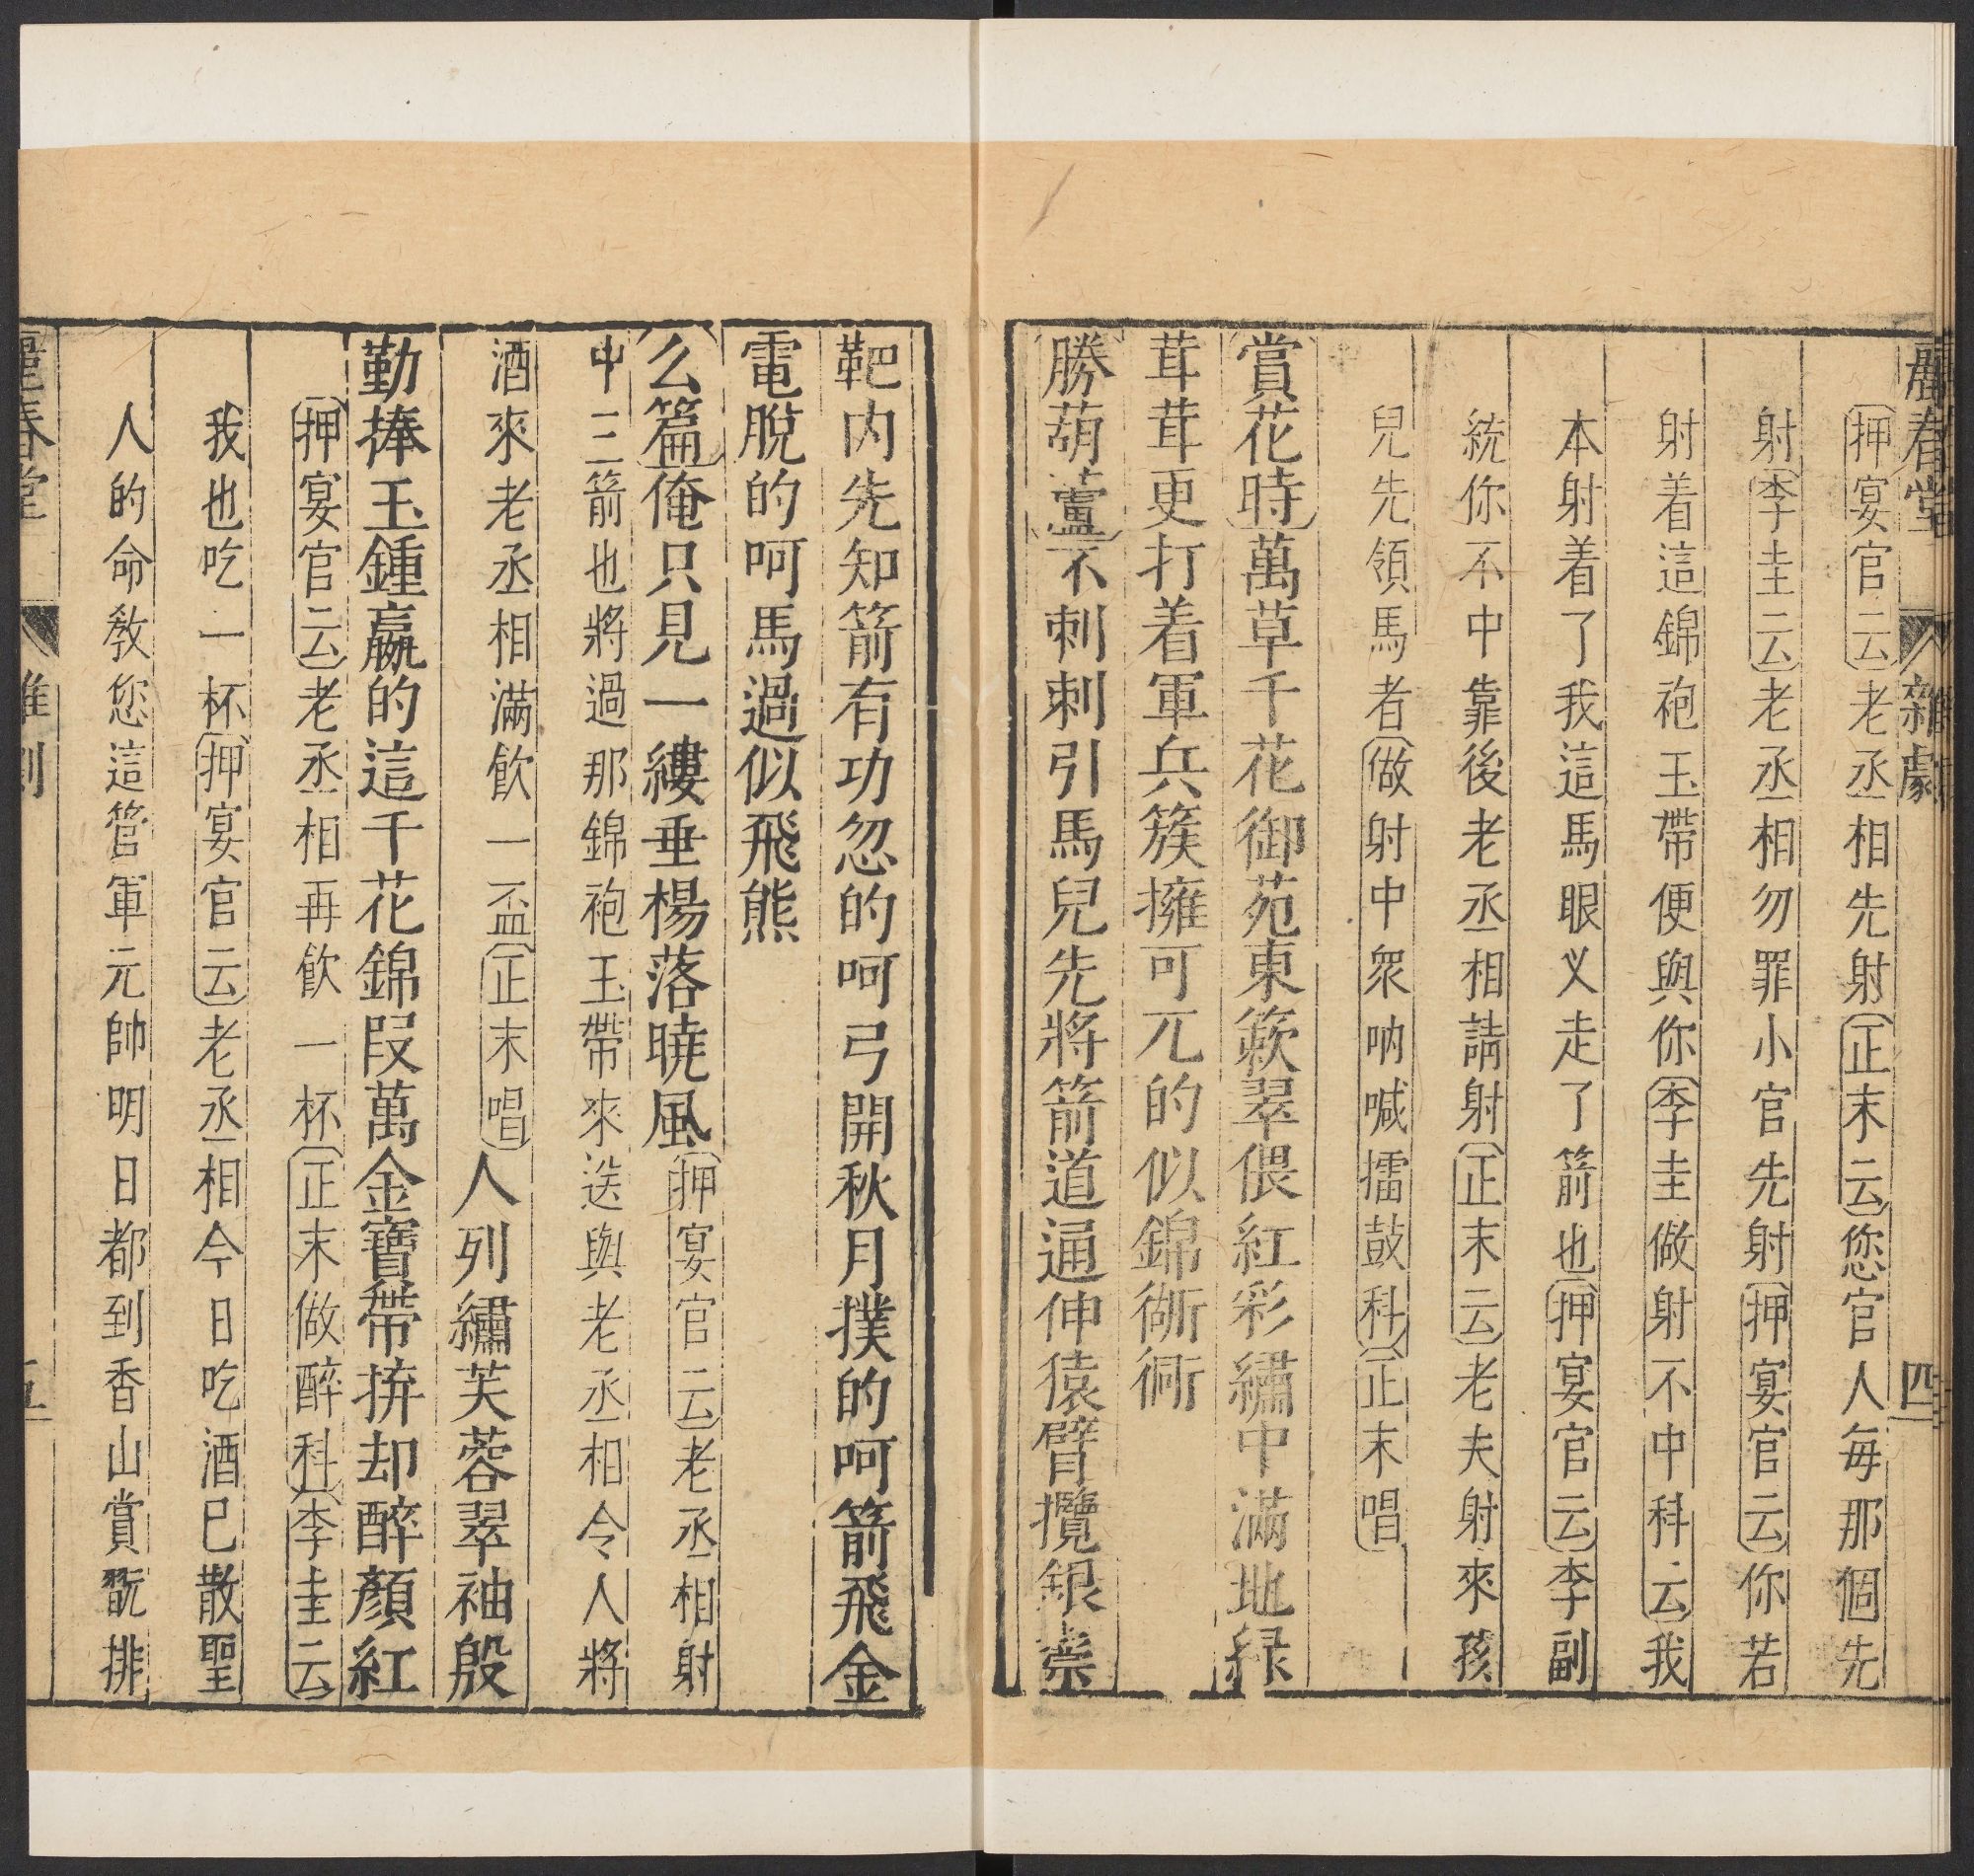 麗春堂 雜劇 四
押宴官云老丞相先射正末云您官人每那個先
射李圭云老丞相勿罪小官先射押宴官云你若
射着這錦袍玉帶便與你李圭做射不中科云我
本射着了我這馬眼乂走了箭也押宴官云李副
統你不中靠後老丞相請射正末云老夫射來孩
兒先領馬者做射中衆吶喊擂鼓科正末唱
賞花時萬草千花御苑東簌翠偎紅彩繡中滿地綠
茸茸更打着軍兵簇擁可兀的似錦衚衕
勝葫蘆不剌剌引馬兒先將箭道通伸猿臂攬銀鬃
靶内先知箭有功忽的呵弓開秋月撲的呵箭飛金
電脫的呵馬過似飛熊
么篇俺只見一縷垂楊落曉風押宴官云老丞相射
中三箭也將過那錦袍玉帶來送與老丞相令人將
酒來老丞相滿飮一盃正末唱人列繡芙蓉翠袖殷
勤捧玉鍾贏的這千花錦叚萬金寶帶拚却醉顏紅
押宴官云老丞相再飮一杯正末做醉科李圭云
我也吃一杯押宴官云老丞相今日吃酒已散聖
人的命敎您這管軍元帥明日都到香山賞翫排
麗春堂 雜劇 五